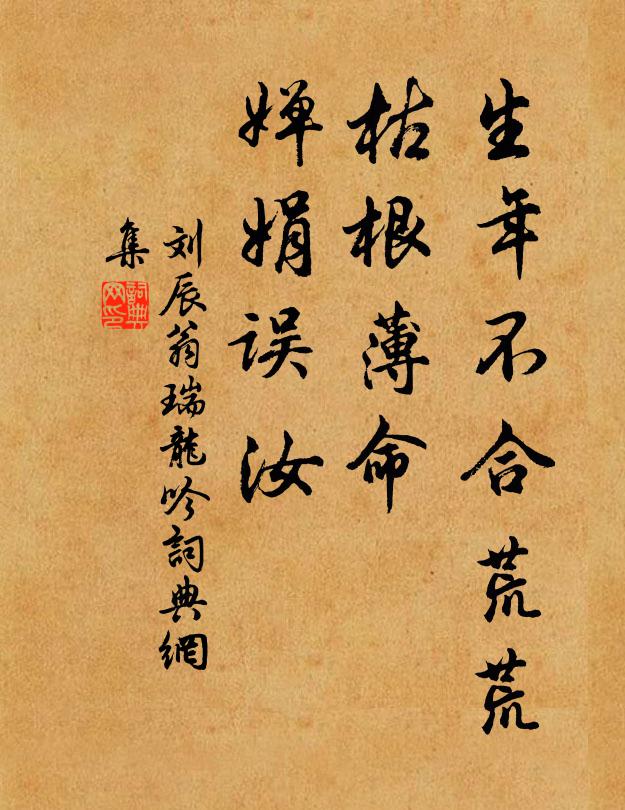 生年不合荒荒
枯根薄命
婵娟误汝
刘辰翁瑞龍吟詞典網
集
詞典
网印